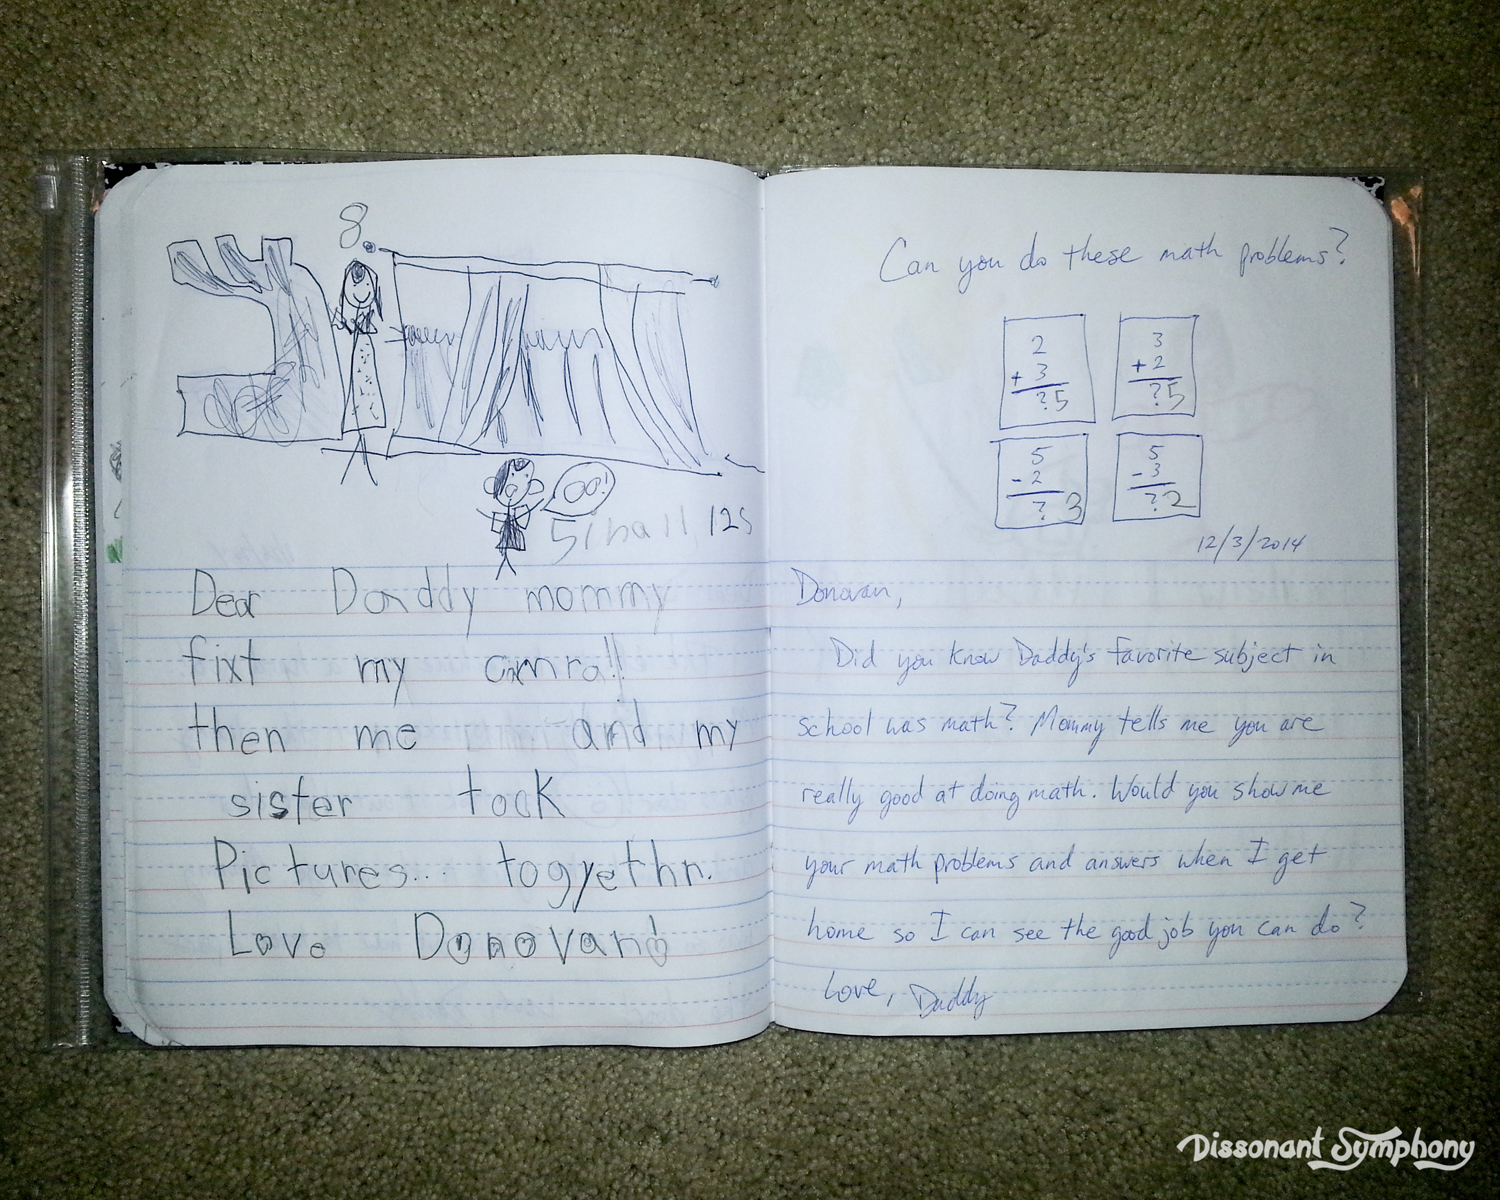 8
oo!
Dear Daddy mommy
fixt my cmra!!
then me and my
sister took
Pictures... togyethr.
Love Donovan
Can you do these math problems?
2
+ 3
?5
3
+ 2
?5
5
- 2
?3
5
- 3
?2
12/3/2014
Donovan,
Did you know Daddy's favorite subject in
school was math? Mommy tells me you are
really good at doing math. Would you show me
your math problems and answers when I get
home so I can see the good job you can do?
Love, Daddy
Dissonant Symphony